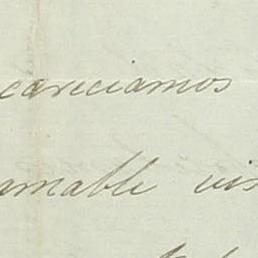 careciamos
amable vis